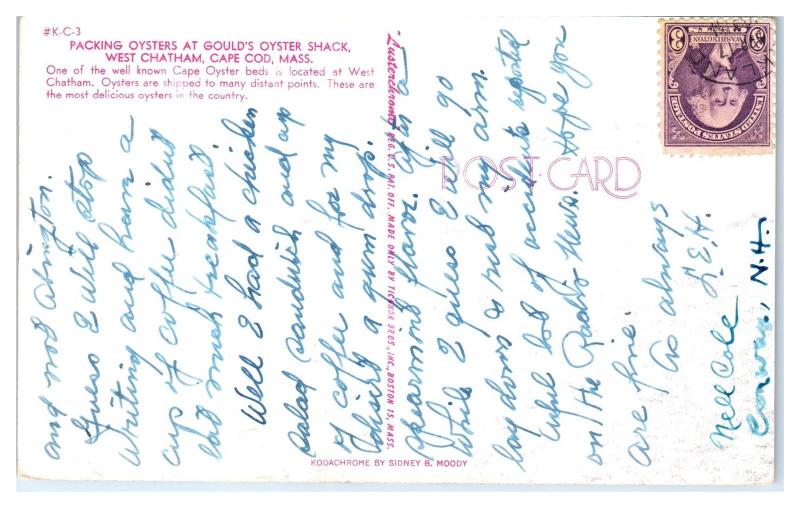 #K-C-3
PACKING OYSTERS AT GOULD'S OYSTER SHACK,
WEST CHATHAM, CAPE COD, MASS.
One of the well known Cape Oyster beds is located at West
Chatham. Oysters are shipped to many distant points. These are
the most delicious oysters in the country.
and not Abington.
Guess I will stop
writing and have a
cup of coffee didnt
eat much breakfast.
Well I had a chicken
salad sandwich and cup
of coffee and for my
desert a gum drop.
"Lusterchrome" REG. U.S. PAT. OFF. MADE ONLY BY TICHNOR BROS., INC., BOSTON 15, MASS.
spearmint flavor. after a
while I guess I will go
lay down & rest my arm.
Awful lot of accidents reported
on the Radio News. Hope you
are fine.
As always
L.E.H.
Nell Cole
Conway, N.H.
POST CARD
KODACHROME BY SIDNEY B. MOODY
UNITED STATES POSTAGE
WASHINGTON
3 3